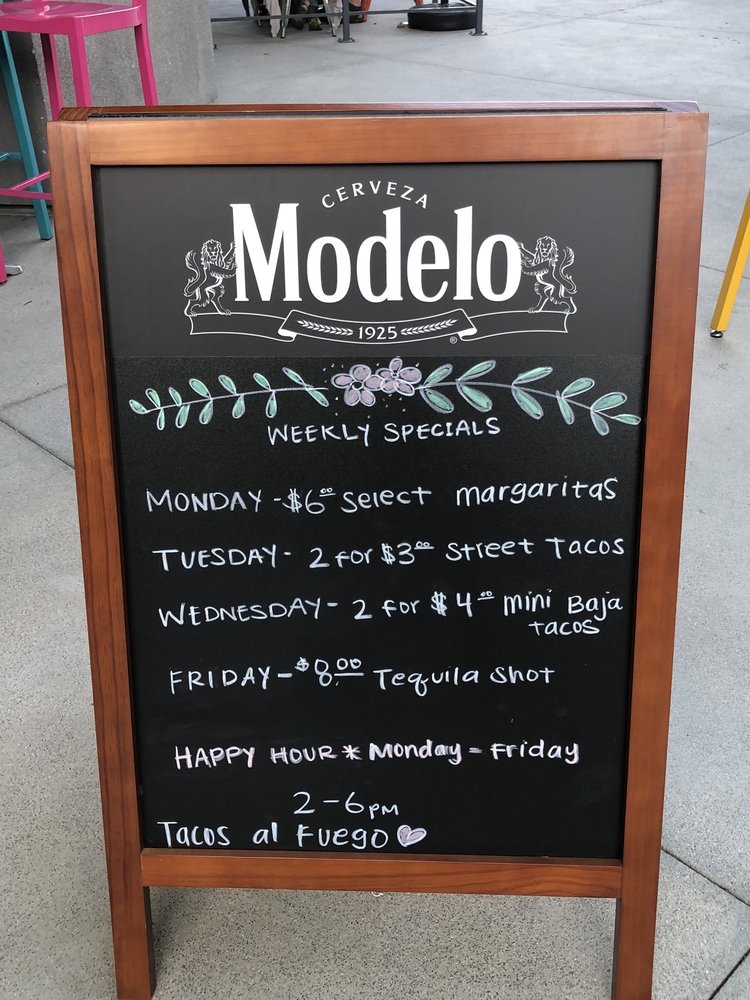 CERVEZA
Modelo
1925
®
WEEKLY SPECIALS
MONDAY - $6⁰⁰ Select margaritas
TUESDAY - 2 for $3⁰⁰ Street Tacos
WEDNESDAY - 2 for $4⁰⁰ mini Baja
tacos
FRIDAY - $8.⁰⁰ Tequila Shot
HAPPY HOUR * Monday - Friday
2-6PM
Tacos al Fuego